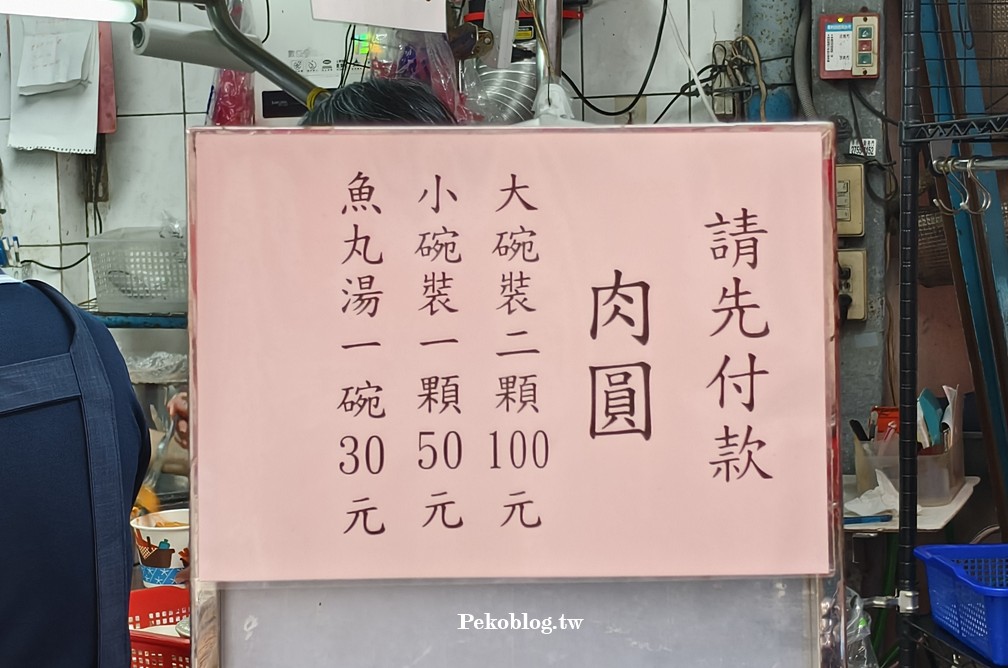 請先付款
肉圓
大碗裝二顆100元
小碗裝一顆50元
魚丸湯一碗30元
Pekoblog.tw